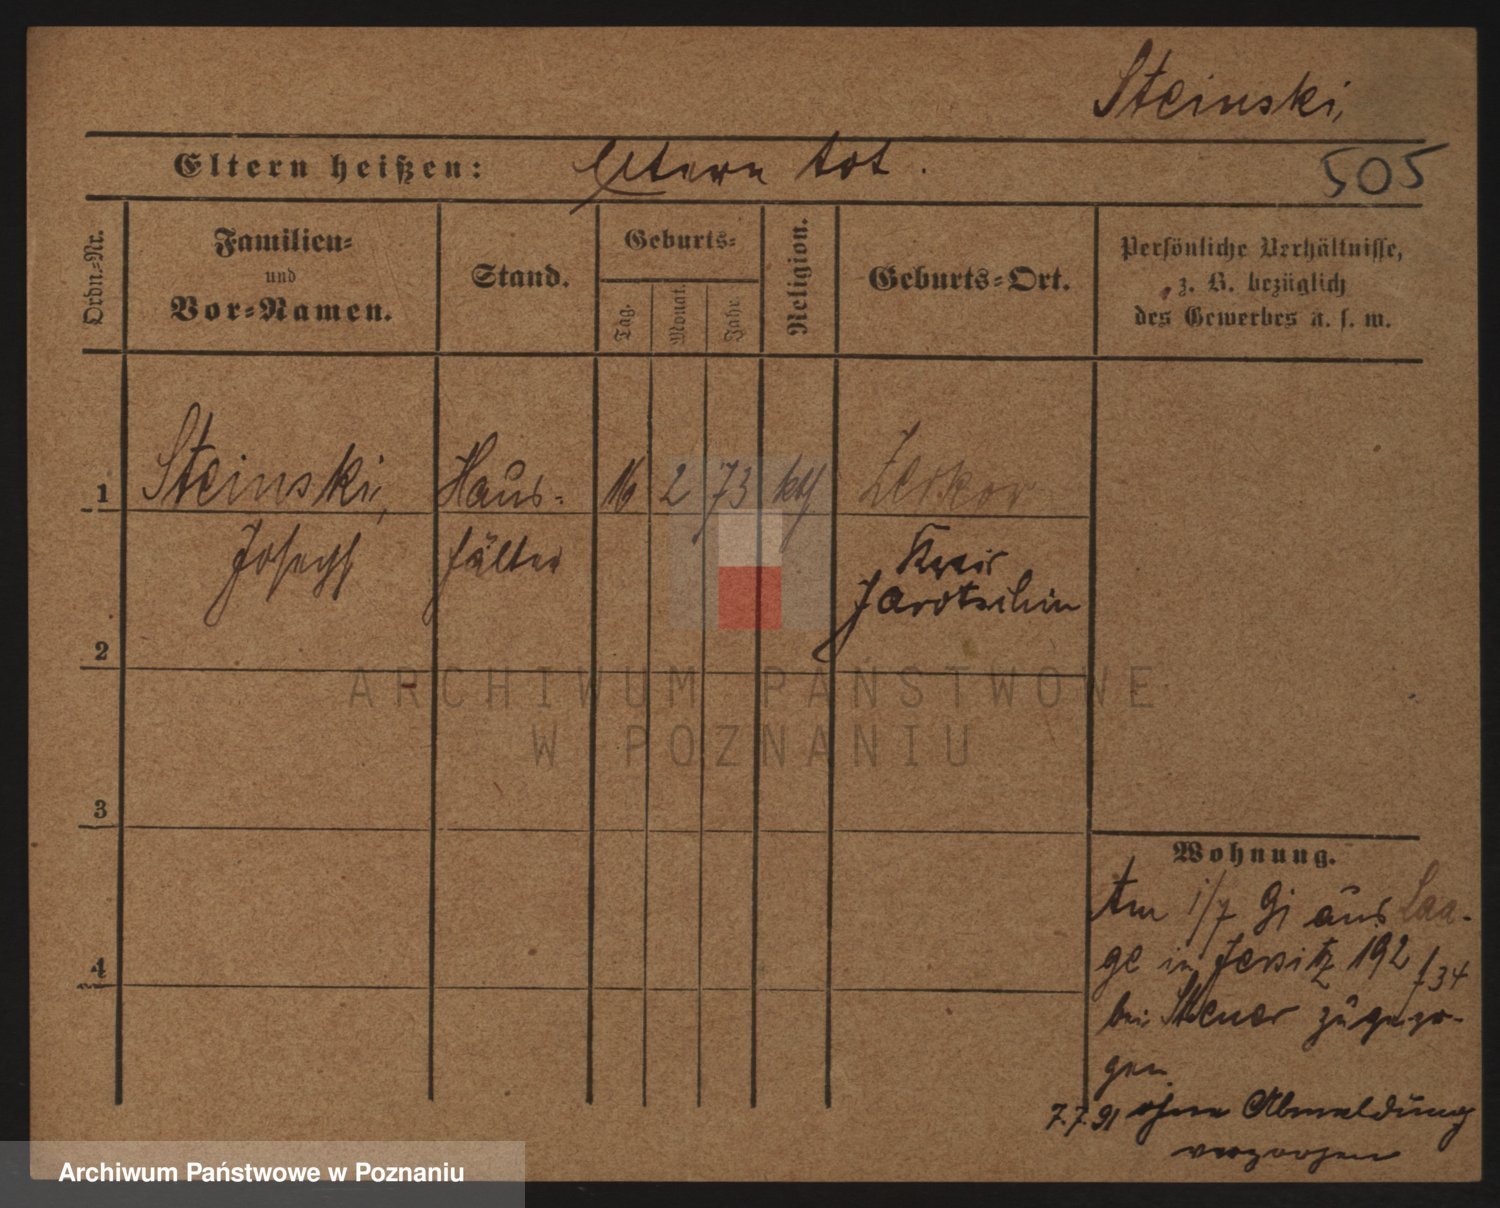 Steinski,
Eltern heißen: Eltern tot.
505
Ordn.=Nr.
Familien=
und
Vor=Namen.
Stand.
Geburts=
Tag.
Monat.
Jahr
Religion.
Geburts=Ort.
Persönliche Verhältnisse,
z. B. bezüglich
des Gewerbes u. s. w.
1
Steinski,
Joseph
Haus=
hälter
16
2
73
kth
Zerkow
Kreis
Jarotschin
2
3
4
Wohnung.
Am 1/7 91 aus
in Jersitz 192
bei zugezo-
gen
7.7.91 ohne Abmeldung
verzogen
ARCHIWUM PAŃSTWOWE
W POZNANIU
Archiwum Państwowe w Poznaniu